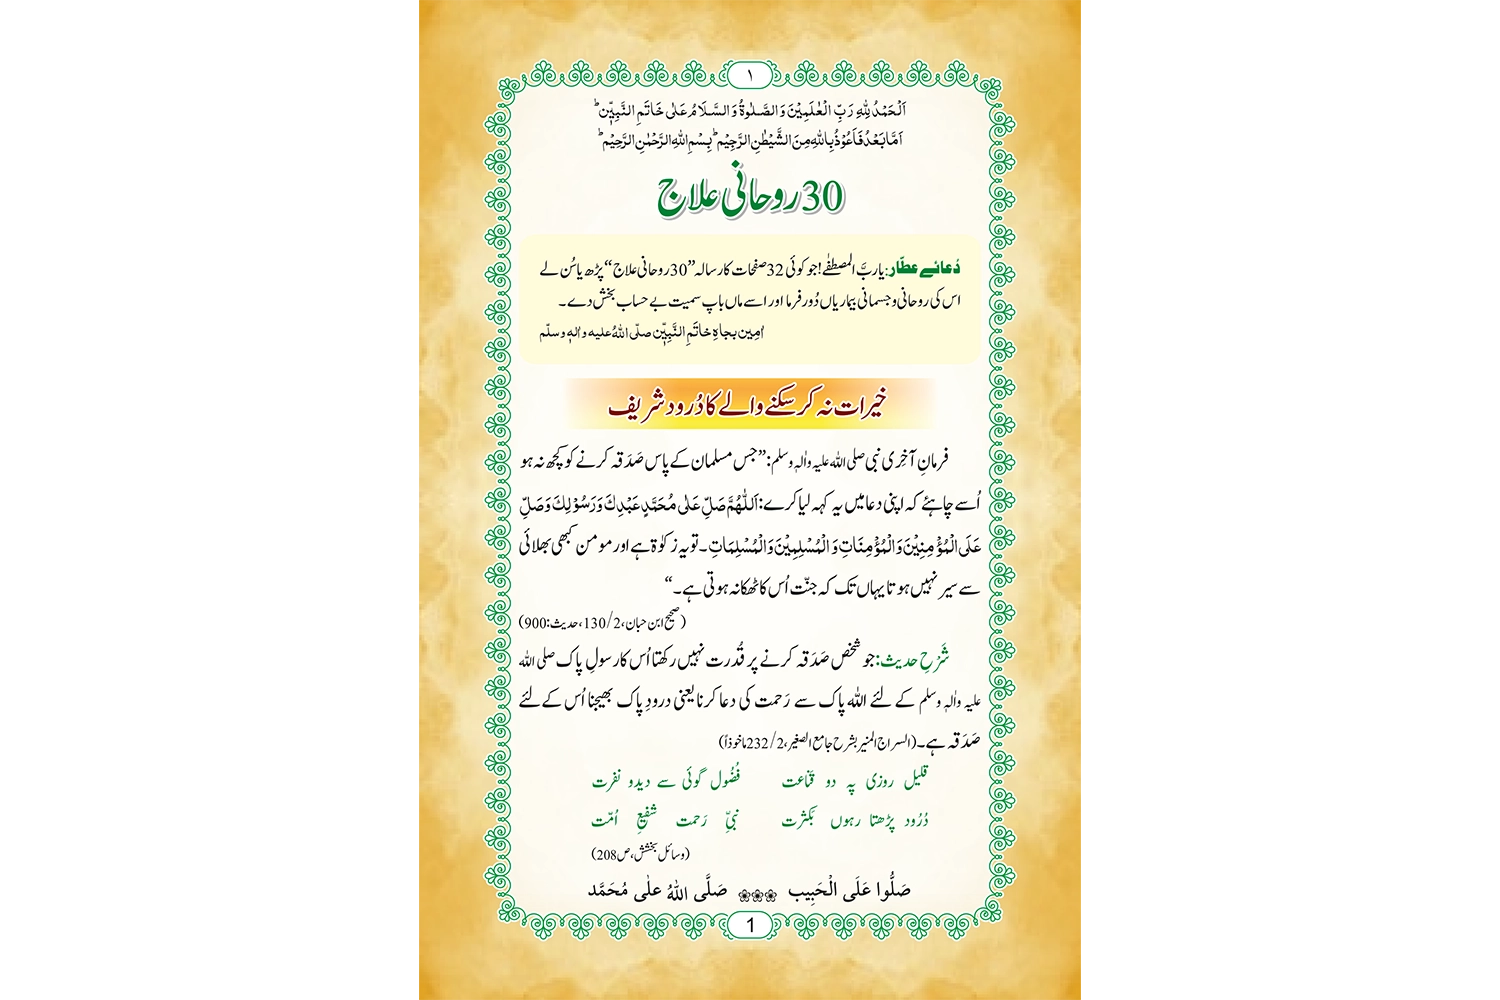 ۱
اَلْحَمْدُ لِلّٰهِ رَبِّ الْعٰلَمِیْنَ وَالصَّلٰوةُ وَالسَّلَامُ عَلٰی خَاتَمِ النَّبِیّٖنؕ
اَمَّا بَعْدُ فَاَعُوْذُ بِاللّٰهِ مِنَ الشَّیْطٰنِ الرَّجِیْمؕ بِسْمِ اللّٰهِ الرَّحْمٰنِ الرَّحِیْمؕ
30 روحانی علاج
دُعائے عطّار: یا ربَّ المصطفٰے! جو کوئی 32 صفحات کا رسالہ ”30 روحانی علاج“ پڑھ یا سُن لے
اس کی روحانی و جسمانی بیماریاں دُور فرما اور اسے ماں باپ سمیت بے حساب بخش دے ۔
اٰمِین بجاہِ خاتَمِ النَّبِیّٖن صلّی اللهُ علیه واٰلهٖ وسلّم
خیرات نہ کر سکنے والے کا دُرود شریف
فرمانِ آخِری نبی صلی اللہ علیہ واٰلہٖ وسلم: ”جس مسلمان کے پاس صَدَقہ کرنے کو کچھ نہ ہو
اُسے چاہئے کہ اپنی دعا میں یہ کہہ لیا کرے: اَللّٰهُمَّ صَلِّ عَلٰی مُحَمَّدٍ عَبْدِكَ وَرَسُوْلِكَ وَصَلِّ
عَلَی الْمُؤْمِنِیْنَ وَالْمُؤْمِنَاتِ وَالْمُسْلِمِیْنَ وَالْمُسْلِمَاتِ۔ تو یہ زکوٰۃ ہے اور مومن کبھی بھلائی
سے سیر نہیں ہوتا یہاں تک کہ جنّت اُس کا ٹھکانہ ہوتی ہے۔“
(صحیح ابن حبان، 2/130، حدیث: 900)
شَرْحِ حدیث: جو شخص صَدَقہ کرنے پر قُدرت نہیں رکھتا اُس کا رسولِ پاک صلی اللہ
علیہ واٰلہٖ وسلم کے لئے اللہ پاک سے رَحمت کی دعا کرنا یعنی درودِ پاک بھیجنا اُس کے لئے
صَدَقہ ہے۔ (السراج المنیر بشرح جامع الصغیر، 2/232 ماخوذاً)
قلیل روزی پہ دو قَناعت فُضُول گوئی سے دیدو نفرت
دُرُود پڑھتا رہوں بَکثرت نبیِّ رَحمت شفیعِ اُمّت
(وسائل بخشش، ص208)
صَلُّوا عَلَی الْحَبِیب ❀❀❀ صَلَّی اللهُ عَلٰی مُحَمَّد
1